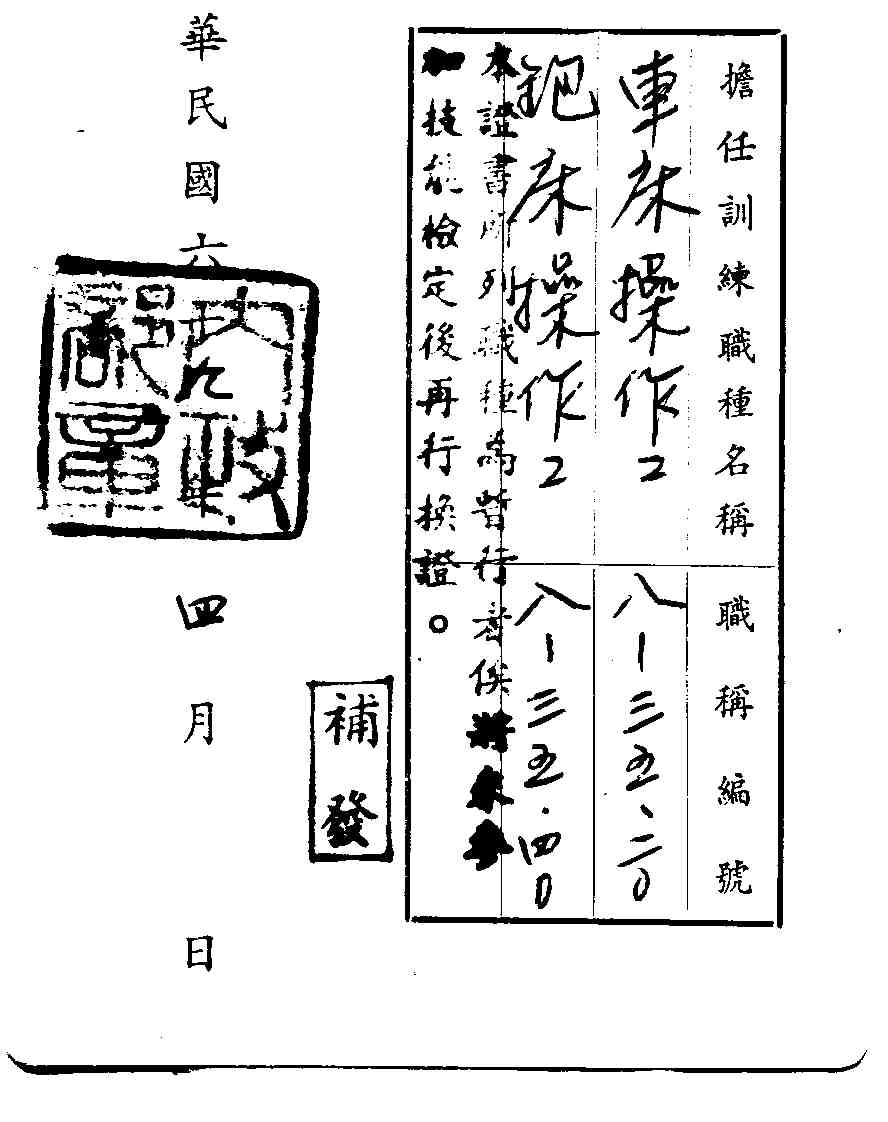 擔任訓練職種名稱 職稱編號
車床操作工 八-三五、二0
鉋床操作工 八-三五.四0
本證書所列職種為暫行者俟將來參
加技能檢定後再行換證。
補發
華民國六 四月 日